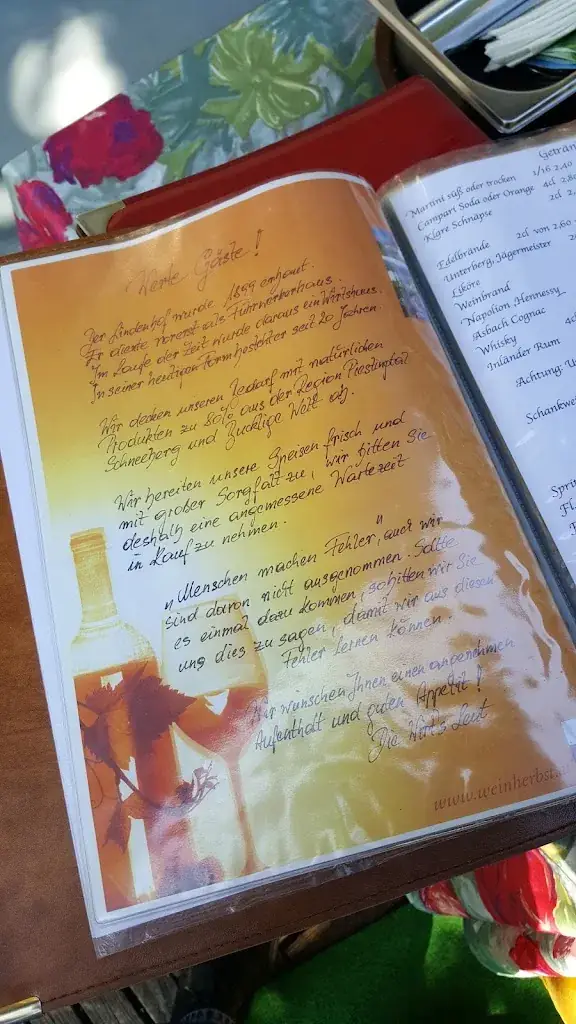 Werte Gäste!
Der Lindenhof wurde 1899 erbaut.
Er diente vorerst als Fuhrwerkerhaus.
Im Laufe der Zeit wurde daraus ein Wirtshaus.
In seiner heutigen Form besteht er seit 20 Jahren.
Wir decken unseren Bedarf mit natürlichen
Produkten zu 80% aus der Region Piestingtal
Schneeberg und Bucklige Welt ab.
Wir bereiten unsere Speisen frisch und
mit großer Sorgfalt zu, wir bitten Sie
deshalb eine angemessene Wartezeit
in Kauf zu nehmen.
"Menschen machen Fehler", auch wir
sind davon nicht ausgenommen. Sollte
es einmal dazu kommen, so bitten wir Sie
uns dies zu sagen, damit wir aus diesen
Fehler lernen können.
Wir wünschen Ihnen einen angenehmen
Aufenthalt und guten Appetit!
Die Wirt's Leut
www.weinherbst.
Geträn
Martini süß oder trocken 1/16 2,40
Campari Soda oder Orange 4cl 2,80
Klare Schnäpse 2cl 2,
Edelbrände 2cl von 2,60
Unterberg, Jägermeister
Liköre
Weinbrand
Napolion, Hennessy
Asbach Cognac
Whisky
Inländer Rum
Achtung:
Schankwe
Sprit